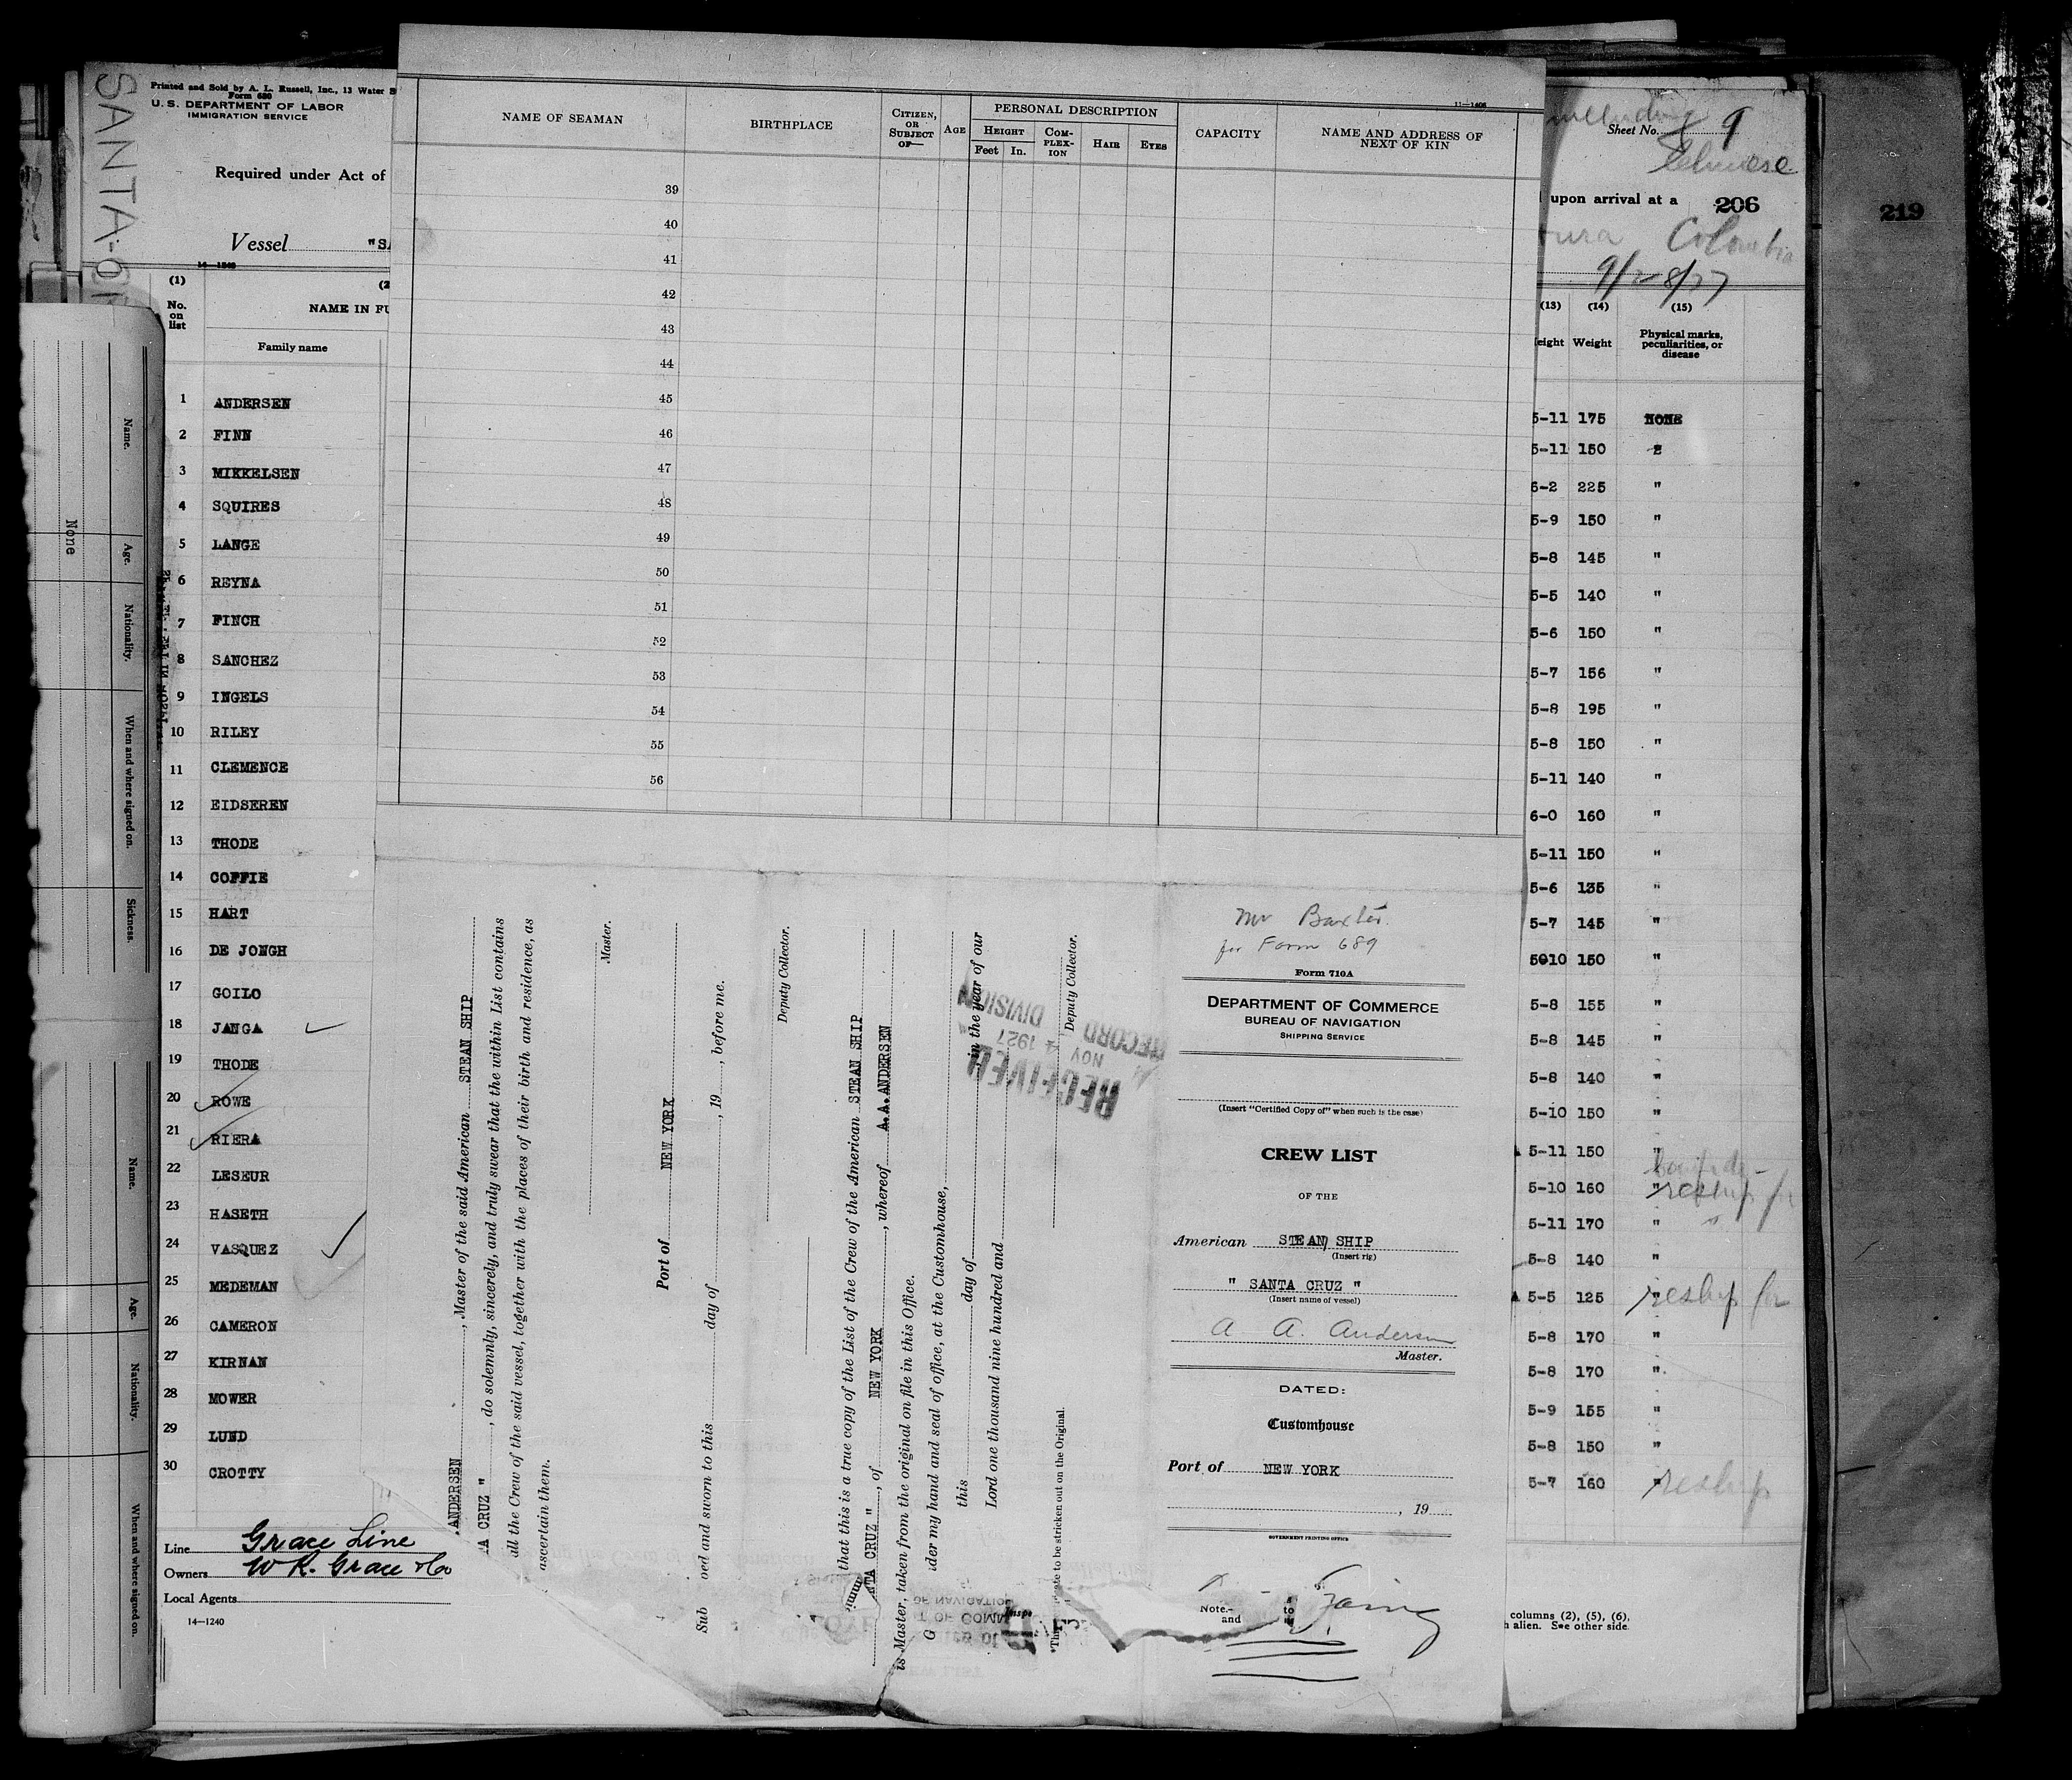 SANTA
Printed and Sold by A. L. Russell, Inc., 13 Water
Form 680
U. S. DEPARTMENT OF LABOR
IMMIGRATION SERVICE
Required under Act of
Vessel "SA
(1)
No. on list
NAME IN FU
Family name
1 ANDERSEN
2 FINN
3 MIKKELSEN
4 SQUIRES
5 LANGE
6 REYNA
7 FINCH
8 SANCHEZ
9 INGELS
10 RILEY
11 CLEMENCE
12 EIDSEREN
13 THODE
14 COFFIE
15 HART
16 DE JONGH
17 GOILO
18 JANGA
19 THODE
20 ROWE
21 RIERA
22 LESEUR
23 HASETH
24 VASQUEZ
25 MEDEMAN
26 CAMERON
27 KIRNAN
28 MOWER
29 LUND
30 CROTTY
Line Grace Line
Owners W R. Grace & Co
Local Agents
14—1240
Name.
Age.
Nationality.
When and where signed on.
Sickness.
None
Name.
Age.
Nationality.
When and where signed on.
11—1406
NAME OF SEAMAN
BIRTHPLACE
CITIZEN, OR SUBJECT OF—
AGE
PERSONAL DESCRIPTION
HEIGHT
Feet In.
COMPLEXION
HAIR
EYES
CAPACITY
NAME AND ADDRESS OF NEXT OF KIN
39
40
41
42
43
44
45
46
47
48
49
50
51
52
53
54
55
56
.ANDERSEN , Master of the said American STEAN SHIP
TA CRUZ " , do solemnly, sincerely, and truly swear that the within List contains
all the Crew of the said vessel, together with the places of their birth and residence, as
ascertain them.
Master.
Port of NEW YORK
Sub oed and sworn to this day of , 19 , before me.
Deputy Collector.
that this is a true copy of the List of the Crew of the American STEAN SHIP
NTA CRUZ " , of NEW YORK , whereof A.A.ANDERSEN
is Master, taken from the original on file in this Office.
G der my hand and seal of office, at the Customhouse,
this day of in the year of our
Lord one thousand nine hundred and
Deputy Collector.
ate to be stricken out on the Original.
RECEIVED
NOV 4 1927
RECORD DIVISION
Mr Baxter.
for Form 689
Form 710A
DEPARTMENT OF COMMERCE
BUREAU OF NAVIGATION
SHIPPING SERVICE
(Insert "Certified Copy of" when such is the case)
CREW LIST
OF THE
American STEAN SHIP
(Insert rig)
" SANTA CRUZ "
(Insert name of vessel)
A A. Andersen
Master.
DATED:
Customhouse
Port of NEW YORK
, 19
GOVERNMENT PRINTING OFFICE
Note.—
and
to
Sheet No. 9
Chinese
upon arrival at a 206
Colombia
9/28/27
(13) (14) (15)
eight Weight Physical marks, peculiarities, or disease
5-11 175 NONE
5-11 150 "
6-2 225 "
5-9 150 "
5-8 145 "
5-5 140 "
5-6 150 "
5-7 156 "
5-8 195 "
5-8 150 "
5-11 140 "
6-0 160 "
5-11 150 "
5-6 135 "
5-7 145 "
5010 150 "
5-8 155 "
5-8 145 "
5-8 140 "
5-10 150 "
5-11 150 "
5-10 160 " reship for
5-11 170 "
5-8 140 "
5-5 125 " reship for
5-8 170 "
5-8 170 "
5-9 155 "
5-8 150 "
5-7 160 " reship
columns (2), (5), (6).
alien. See other side.
219